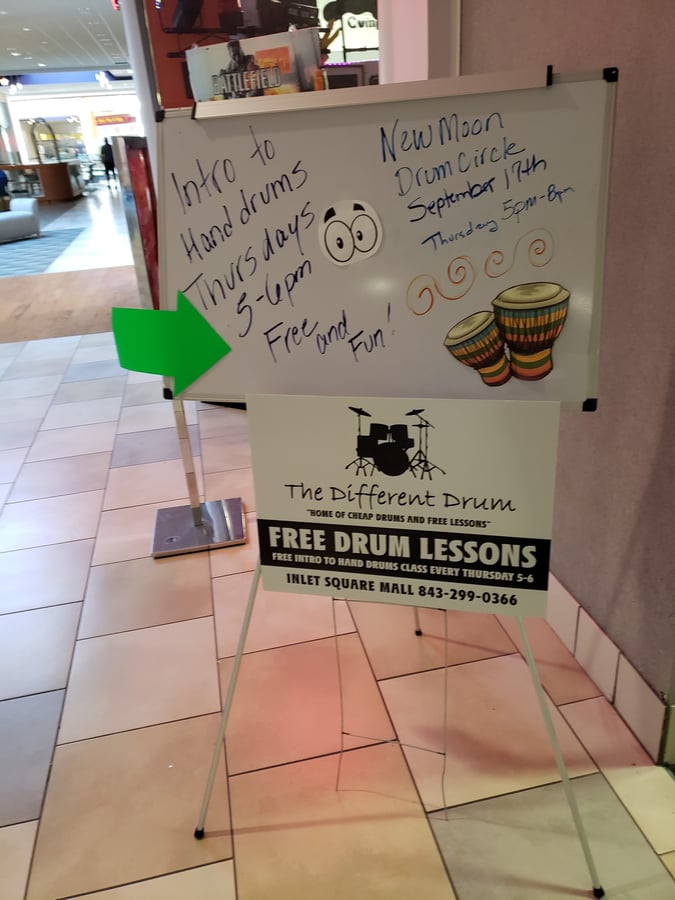 BATTLEFIELD
Intro to
Hand drums
Thursdays
5-6pm
Free and
Fun!
New Moon
Drum Circle
September 17th
Thursday 5pm-8pm
The Different Drum
"HOME OF CHEAP DRUMS AND FREE LESSONS"
FREE DRUM LESSONS
FREE INTRO TO HAND DRUMS CLASS EVERY THURSDAY 5-6
INLET SQUARE MALL 843-299-0366